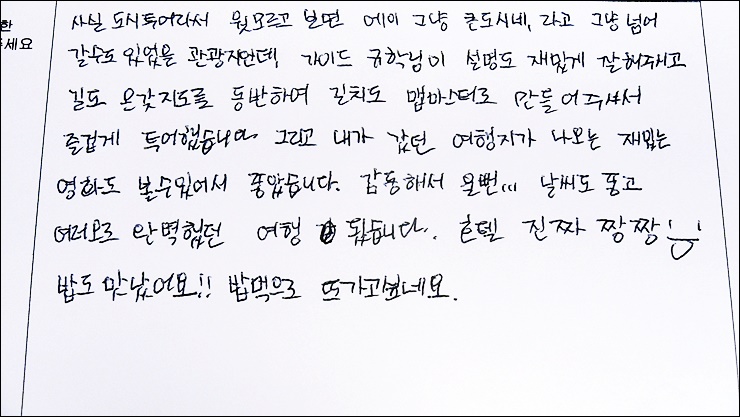 한
세요
사실 도시투어라서 뭣모르고 보면 에이 그냥 큰도시네, 라고 그냥 넘어
갈수도 있었을 관광지인데, 가이드 규학님이 설명도 재밌게 잘해주시고
길도 온갖지도를 동반하여 길치도 맵마스터로 만들어주셔서
즐겁게 투어했습니다 그리고 내가 갔던 여행지가 나오는 재밌는
영화도 볼수있어서 좋았습니다. 감동해서 울뻔... 날씨도 좋고
여러모로 완벽했던 여행 됐습니다. 호텔 진짜 짱짱
밥도 맛났어요!! 밥먹으로 또가고싶네요.